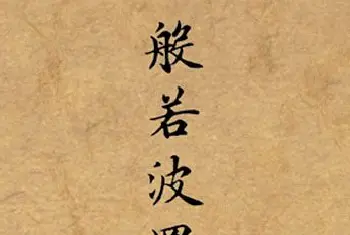 般若波